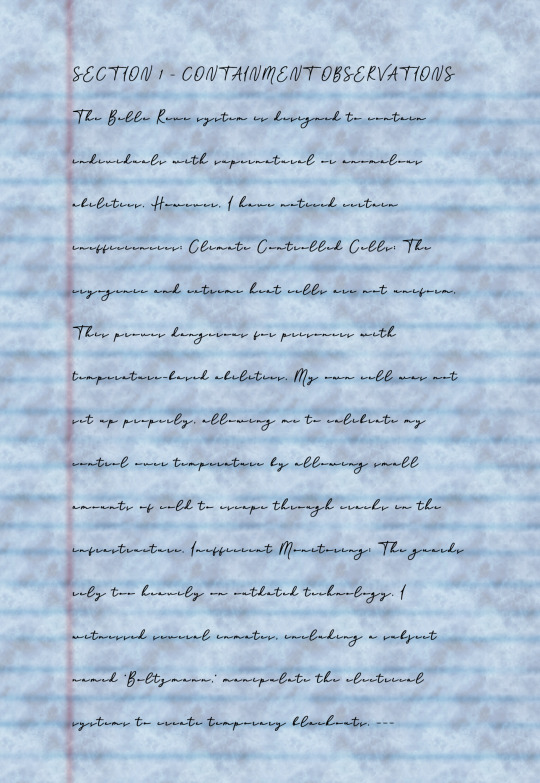 SECTION 1 - CONTAINMENT OBSERVATIONS
The Belle Reve system is designed to contain
individuals with supernatural or anomalous
abilities. However, I have noticed certain
inefficiencies: Climate Controlled Cells: The
cryogenic and extreme heat cells are not uniform.
This proves dangerous for prisoners with
temperature-based abilities. My own cell was not
set up properly, allowing me to calibrate my
control over temperature by allowing small
amounts of cold to escape through cracks in the
infrastructure. Inefficient Monitoring: The guards
rely too heavily on outdated technology. I
witnessed several inmates, including a subject
named 'Boltzmann,' manipulate the electrical
systems to create temporary blackouts. ---